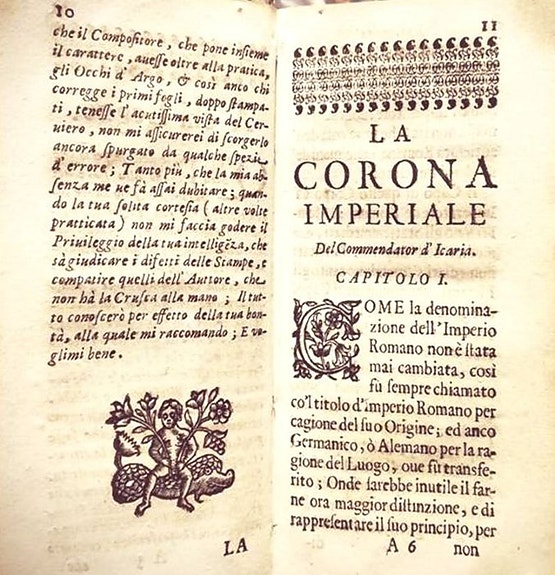 10
che il Compositore, che pone insieme
il carattere, auesse oltre alla pratica,
gli Occhi d'Argo, & così anco chi
corregge i primi fogli, doppo stampa-
ti, tenesse l'acutissima vista del Cer-
uiero, non mi assicurerei di scorgerlo
ancora spurgato da qualche spezie
d'errore; Tanto più, che la mia ab-
senza me ne fà assai dubitare; quan-
do la tua solita cortesia (altre volte
pratticata) non mi faccia godere il
Priuilegio della tua intelligẽza, che
sà giudicare i difetti delle Stampe, e
compatire quelli dell'Auttore, che
non hà la Crusca alla mano; Il tut-
to conoscerò per effetto della tua bon-
tà, alla quale mi raccomando; E vo-
glimi bene.
LA
11
LA
CORONA
IMPERIALE
Del Commendator d'Icaria.
CAPITOLO I.
COME la denomina-
zione dell'Imperio
Romano non è stata
mai cambiata, così
fù sempre chiamato
co'l titolo d'imperio Romano per
cagione del suo Origine; ed anco
Germanico, ò Alemano per la ra-
gione del Luogo, oue fu transfe-
rito; Onde sarebbe inutile il far-
ne ora maggior distinzione, e di
rappresentare il suo principio, per
A 6 non